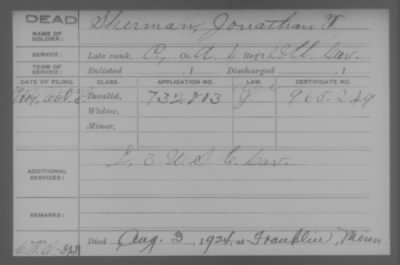 DEAD
Sherman, Jonathan T
NAME OF SOLDIER:
SERVICE:
Late rank, Co. Regt Cav.
TERM OF SERVICE:
Enlisted , 1 Discharged , 1
DATE OF FILING. CLASS. APPLICATION NO. LAW. CERTIFICATE NO.
Invalid, 732813 968.249
Widow,
Minor,
ADDITIONAL SERVICES:
U.S.C. Cav.
REMARKS:
Died Aug. 3, 1924, at Franklin, Minn